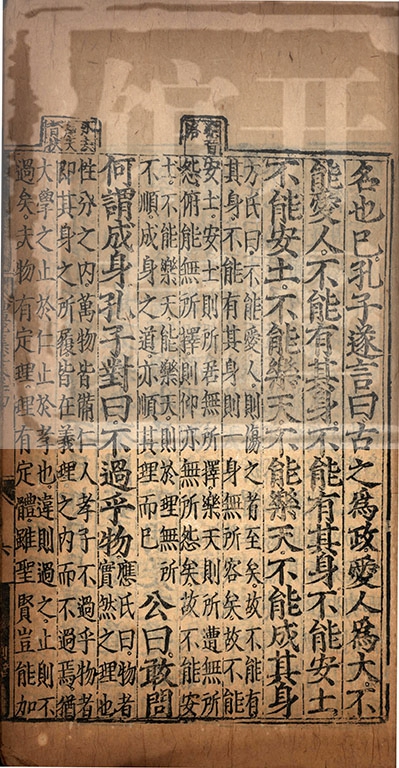 名也已孔子遂言曰古之爲政愛人爲大不
能愛人不能有其身不能有其身不能安土
不能安土不能樂天不能樂天不能成其身
方氏曰不能愛人則傷之者至矣故不能有
其身不能有其身則一身無所容矣故不能
安土安土則所居無所擇樂天則所遭無所
怨俯能無所擇則仰亦無所怨矣故不能安
土不能樂天能樂天則於理無所
不順成身之道亦順其理而已
公曰敢問
何謂成身孔子對曰不過乎物
應氏曰物者
實然之理也
性分之内萬物皆備仁人孝子不過乎物者
即其身之所履皆在義理之内而不過焉猶
大學之止於仁止於孝也違則過之止則不
過矣夫物有定理理有定體雖聖賢豈能加